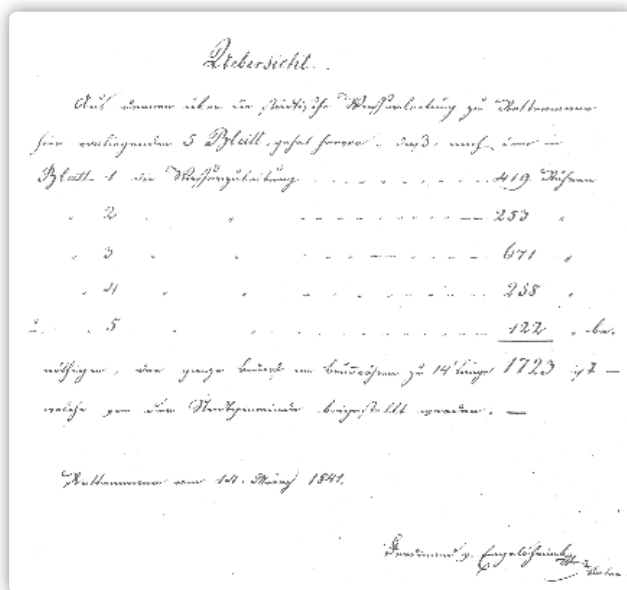 Uebersicht.
Aus denen über die städtische Wasserleitung zu Rottenmann
hier vorliegenden 5 Blatt, gehet hervor, daß, nach der in
Blatt 1 die Wasserzuleitung 419 Röhren
" 2 " " 253 "
" 3 " " 671 "
" 4 " " 258 "
u. " 5 " " 122 " be-
nöthigen, der ganze Bedarf an Brunnröhren zu 14' Länge 1723 ist —
welche von der Stadtgemeinde beigestellt werden. —
Rottenmann am 14. März 1841.
Ferdinand v.